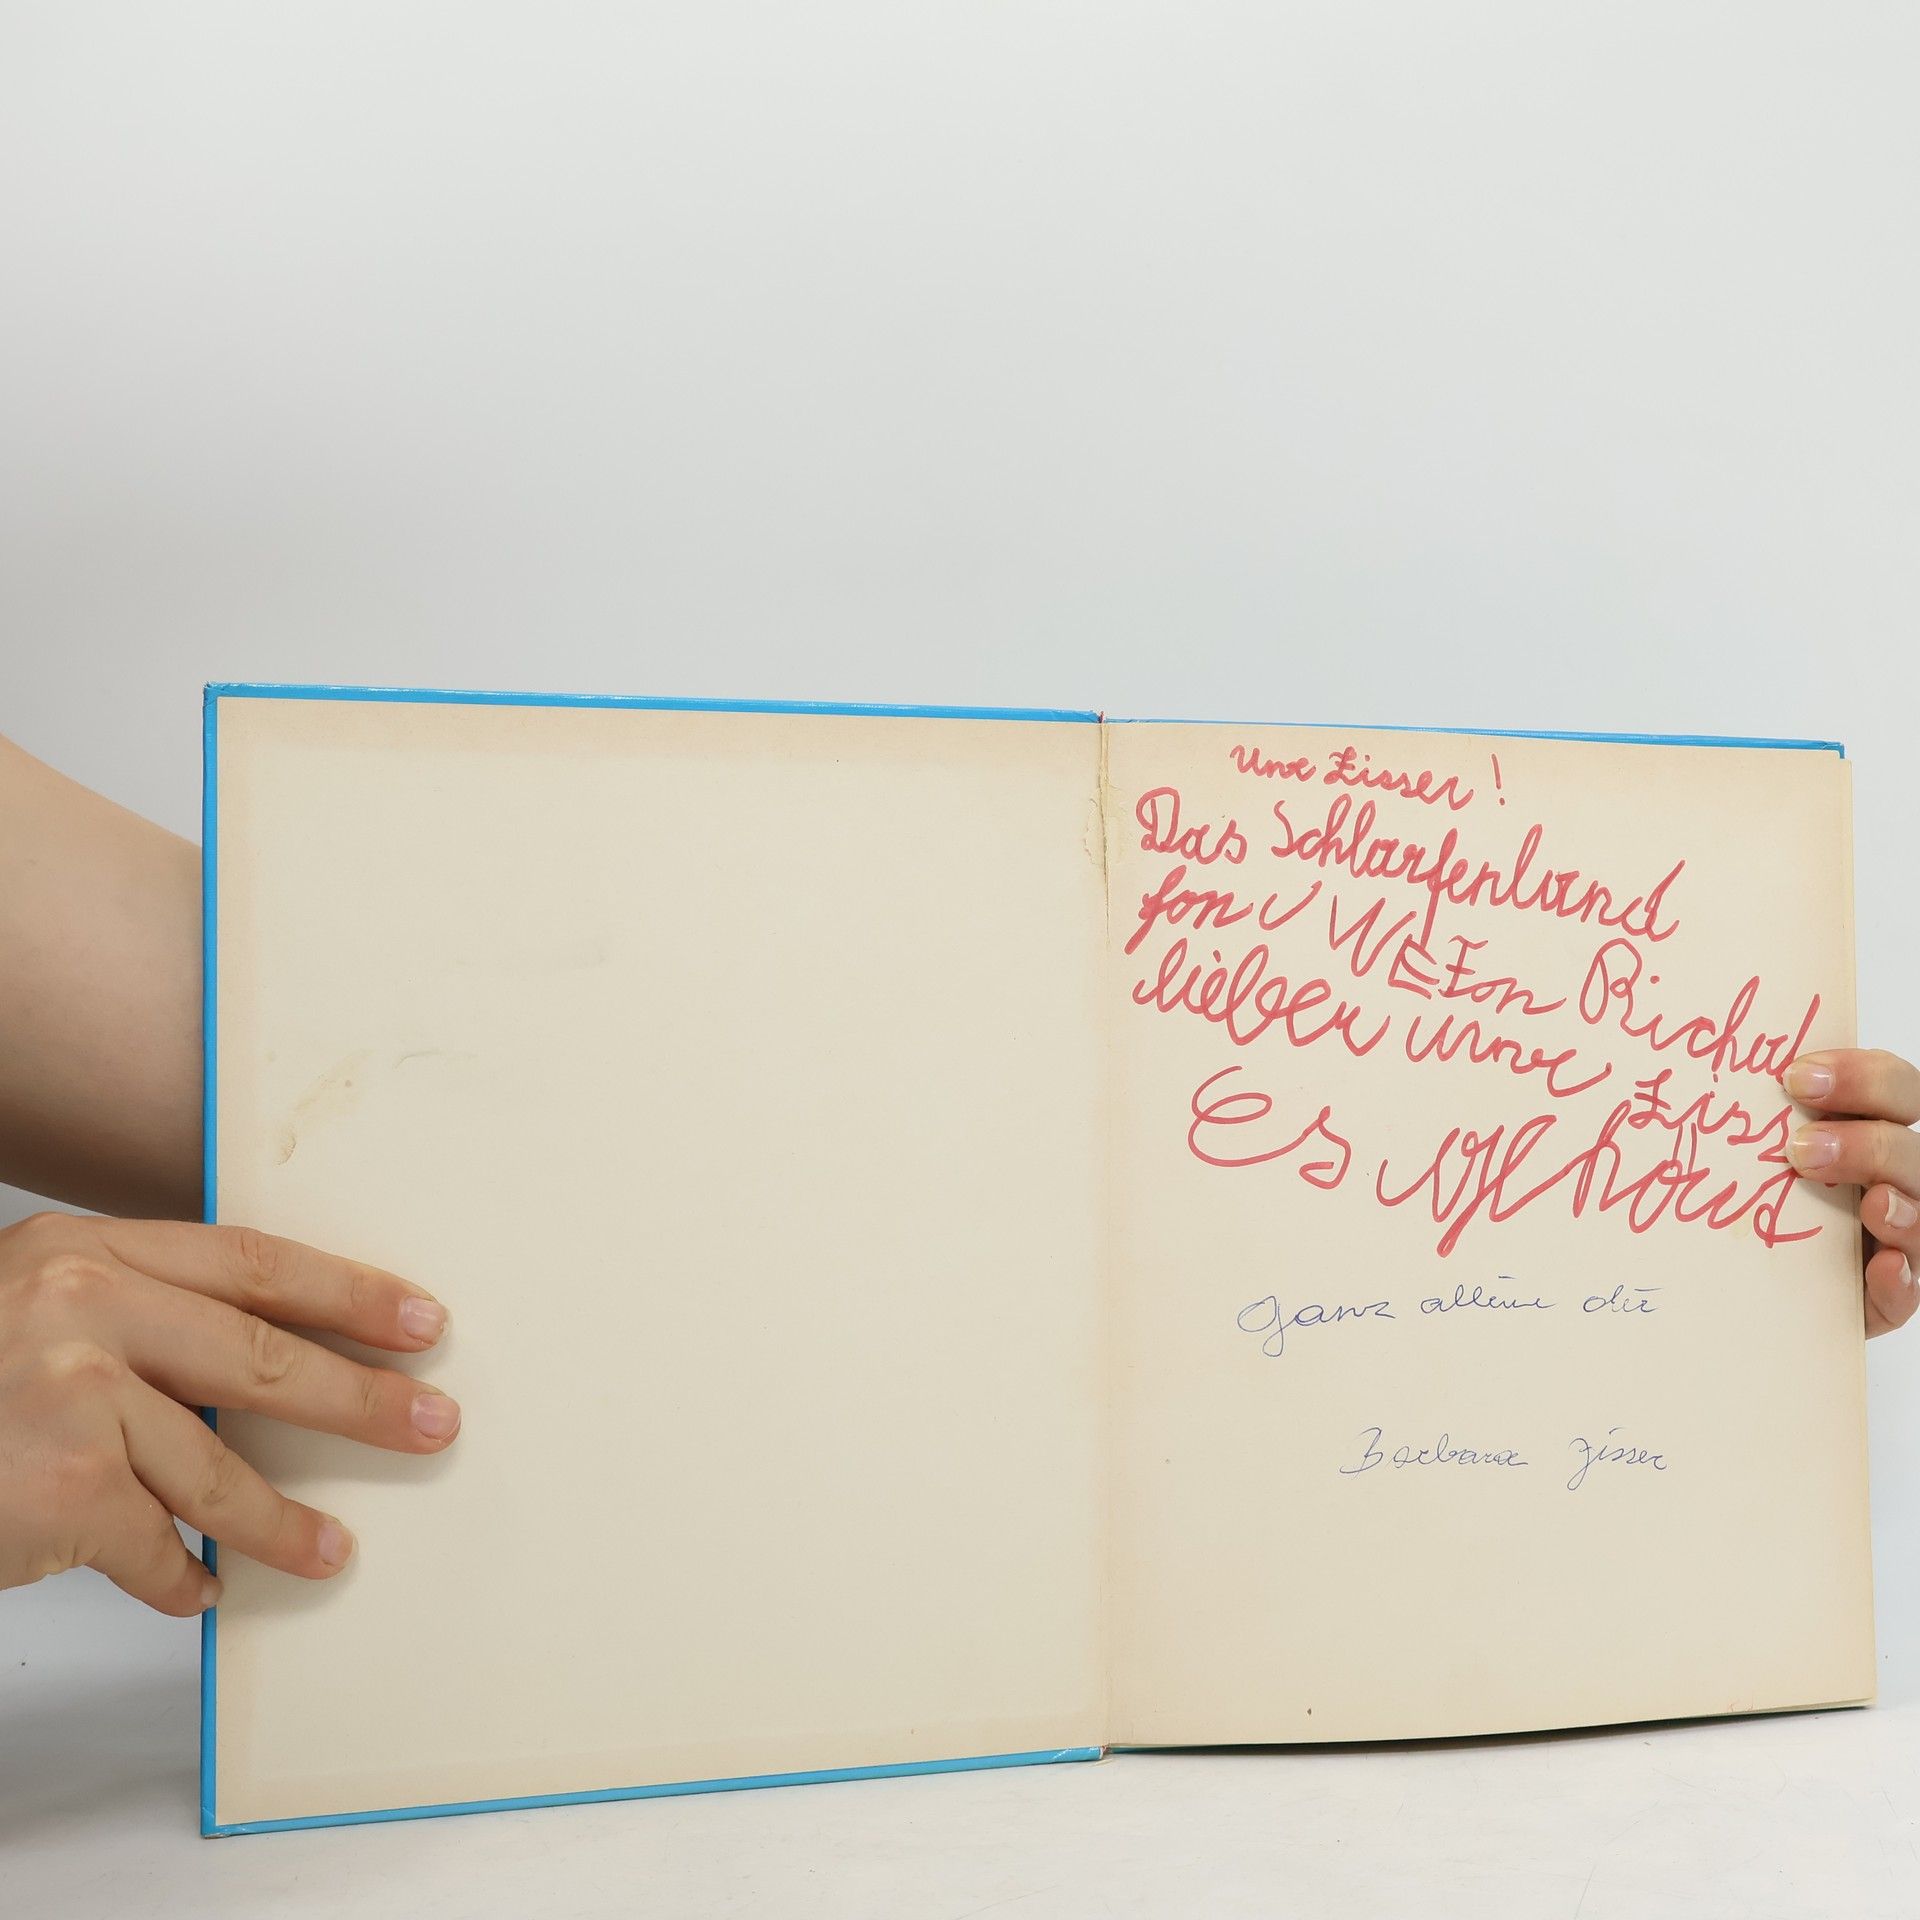 Uwe Zisser!
Das Schlarfenland
fon UWE Fon Richad
lieber Uwe Ziss
Es
ganz alleine die
Barbara Zisser